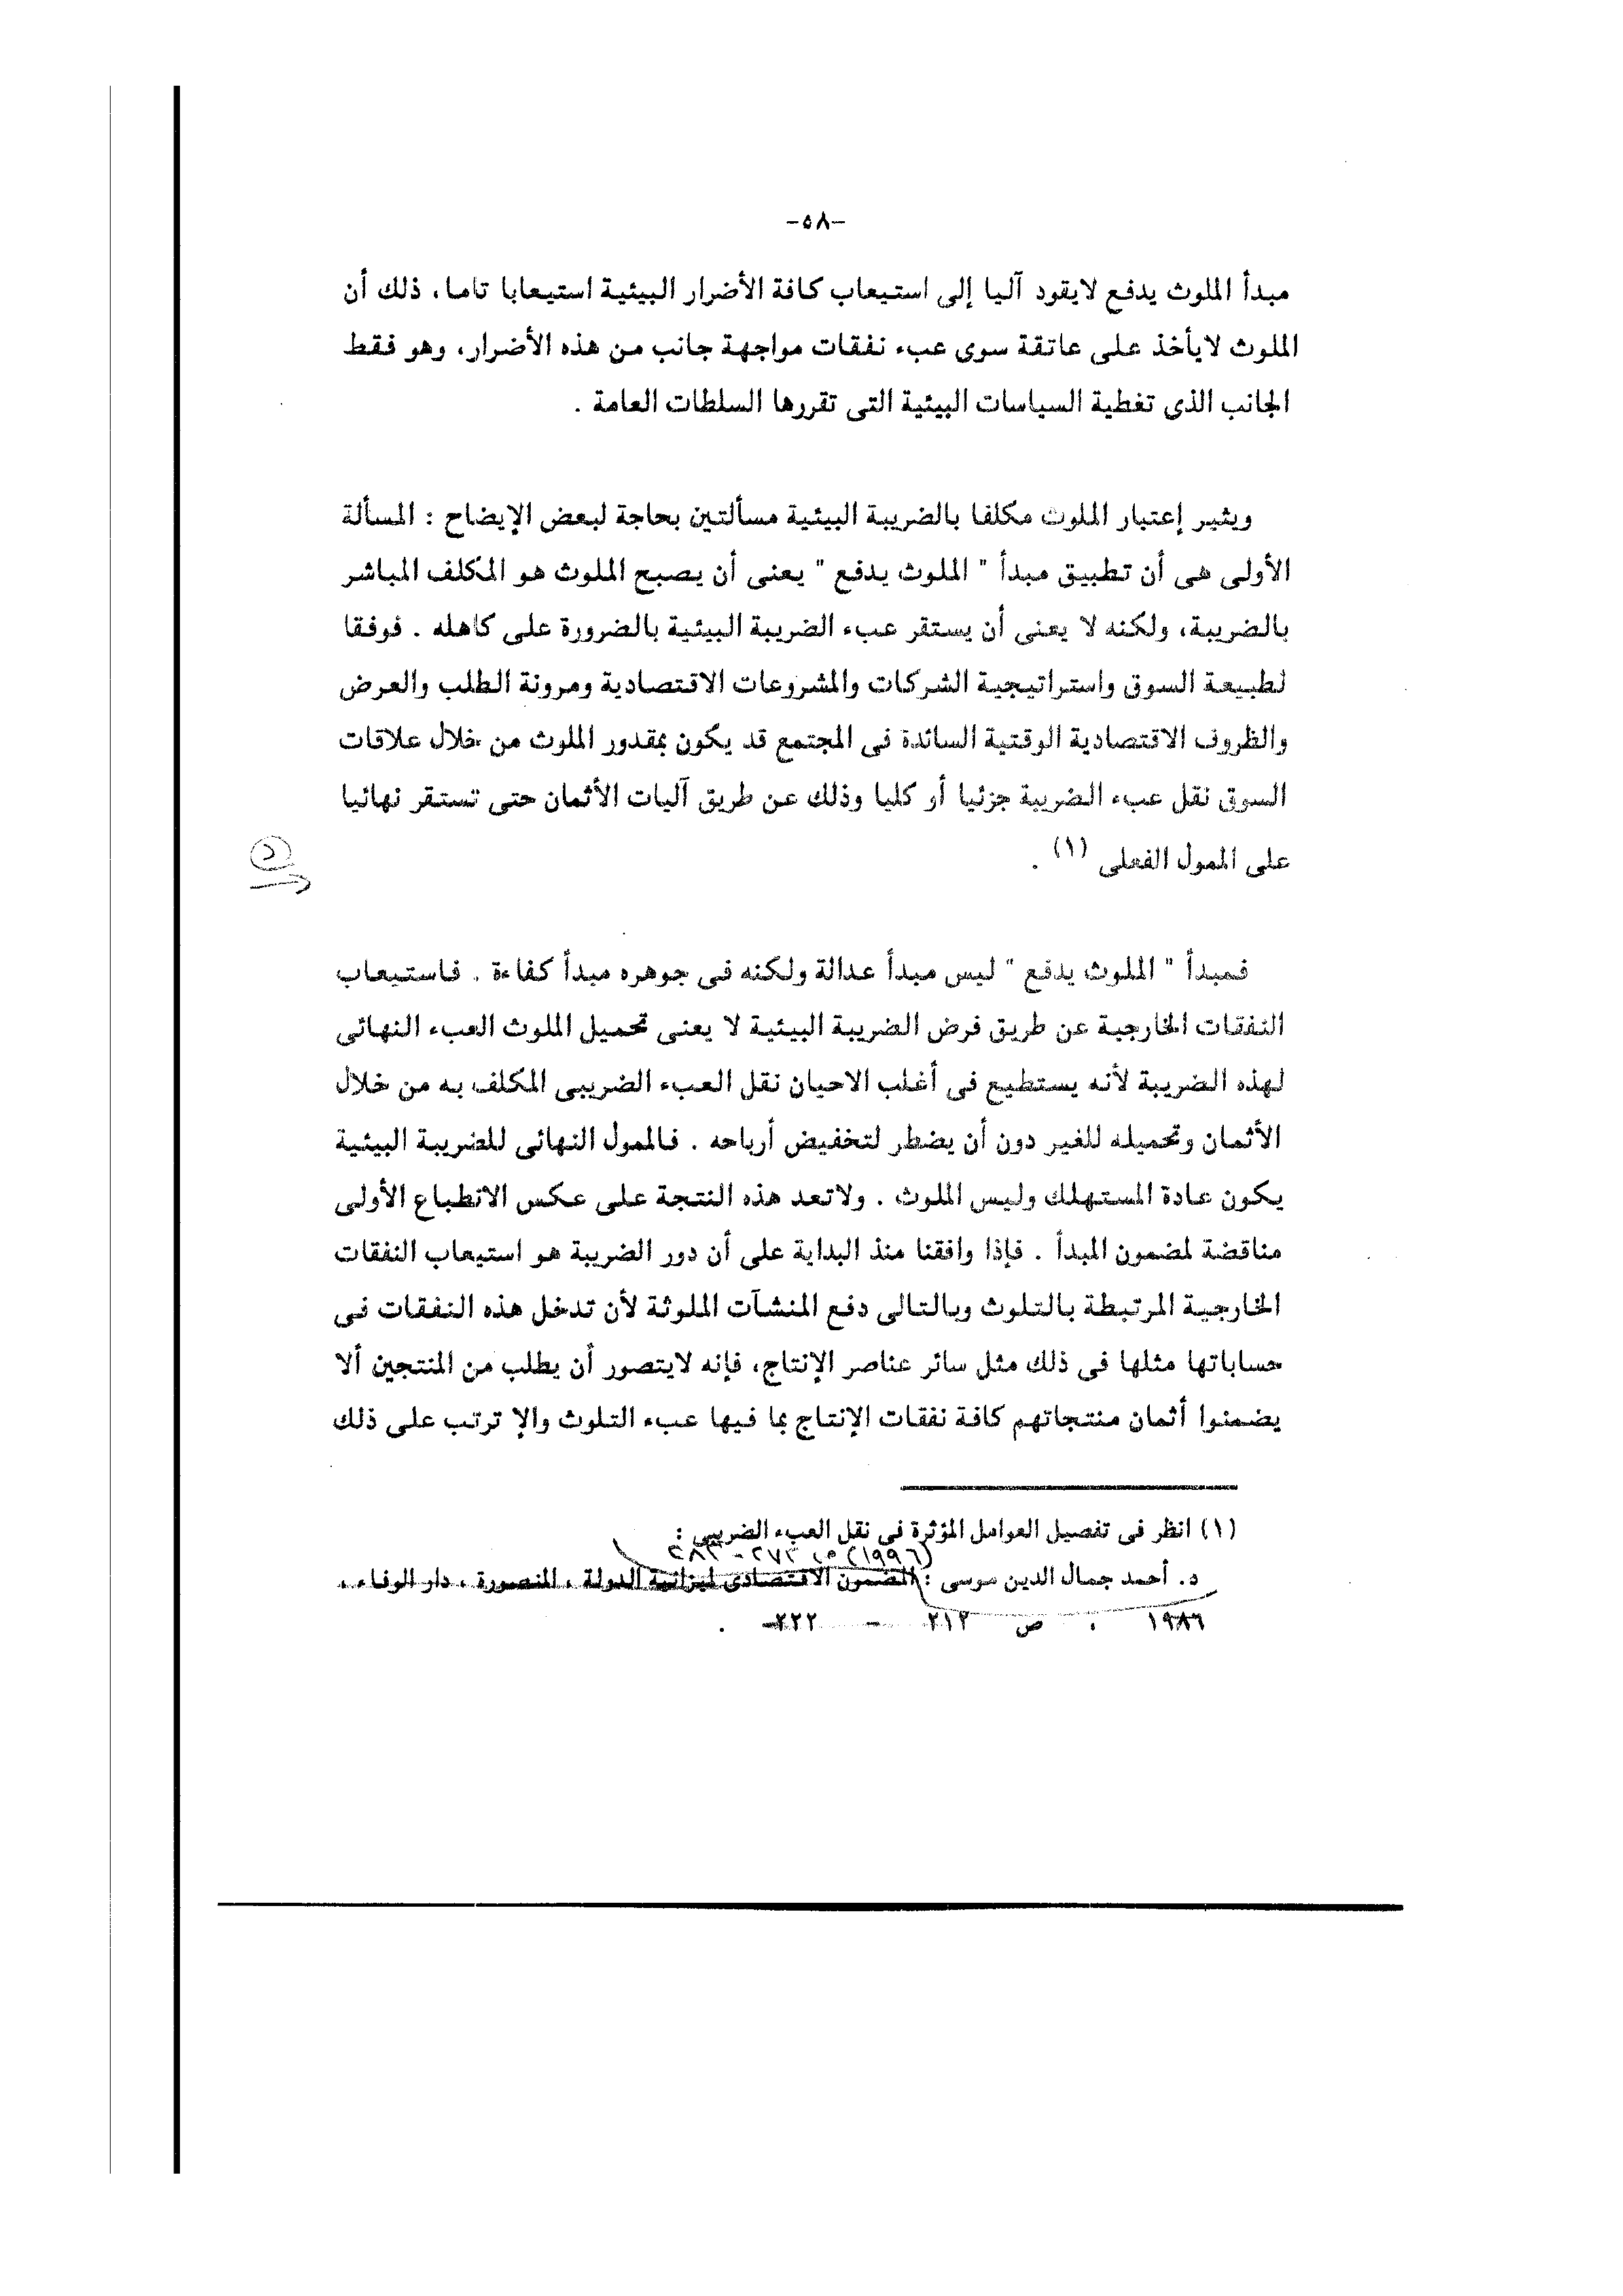 -٥٨-
مبدأ الملوث يدفع لايقود آليا إلى استيعاب كافة الأضرار البيئية استيعابا تاما، ذلك أن
الملوث لايأخذ على عاتقة سوى عبء نفقات مواجهة جانب من هذه الأضرار، وهو فقط
الجانب الذى تغطية السياسات البيئية التى تقررها السلطات العامة .
ويثير إعتبار الملوث مكلفا بالضريبة البيئية مسألتين بحاجة لبعض الإيضاح : المسألة
الأولى هى أن تطبيق مبدأ " الملوث يدفع " يعنى أن يصبح الملوث هو المكلف المباشر
بالضريبة، ولكنه لا يعنى أن يستقر عبء الضريبة البيئية بالضرورة على كاهله . فوفقا
لطبيعة السوق واستراتيجية الشركات والمشروعات الاقتصادية ومرونة الطلب والعرض
والظروف الاقتصادية الوقتية السائدة فى المجتمع قد يكون بمقدور الملوث من خلال علاقات
السوق نقل عبء الضريبة جزئيا أو كليا وذلك عن طريق آليات الأثمان حتى تستقر نهائيا
على الممول الفعلى (١) .
فمبدأ " الملوث يدفع " ليس مبدأ عدالة ولكنه فى جوهره مبدأ كفاءة . فاستيعاب
النفقات الخارجية عن طريق فرض الضريبة البيئية لا يعنى تحميل الملوث العبء النهائى
لهذه الضريبة لأنه يستطيع فى أغلب الاحيان نقل العبء الضريبى المكلف به من خلال
الأثمان وتحميله للغير دون أن يضطر لتخفيض أرباحه . فالممول النهائى للضريبة البيئية
يكون عادة المستهلك وليس الملوث . ولاتعد هذه النتجة على عكس الانطباع الأولى
مناقضة لمضمون المبدأ . فإذا وافقنا منذ البداية على أن دور الضريبة هو استيعاب النفقات
الخارجية المرتبطة بالتلوث وبالتالى دفع المنشآت الملوثة لأن تدخل هذه النفقات فى
حساباتها مثلها فى ذلك مثل سائر عناصر الإنتاج، فإنه لايتصور أن يطلب من المنتجين ألا
يضمنوا أثمان منتجاتهم كافة نفقات الإنتاج بما فيها عبء التلوث والإ ترتب على ذلك
(١) انظر فى تفصيل العوامل المؤثرة فى نقل العبء الضريبى :
(١٩٩٦) ص ٢٧٣ - ٢٨٣
د. أحمد جمال الدين موسى : المضمون الاقتصادى لميزانية الدولة ، المنصورة ، دار الوفاء ،
١٩٨٦ ، ص ٢١٢ - ٢٢٢ .